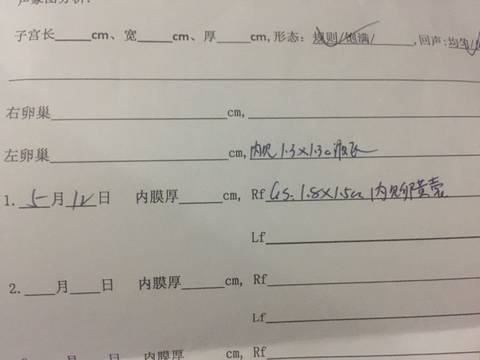 声象图分析:
子宫长____cm、宽____cm、厚____cm,形态: 规则/饱满/____,回声:均匀/
右卵巢____cm,
左卵巢____cm,内见1.3×1.3cm液区
1. 5月12日 内膜厚____cm, Rf Gs. 1.8×1.5cm 内见卵黄囊
Lf
2.____月____日 内膜厚____cm, Rf
Lf
月____日 内膜厚____cm, Rf